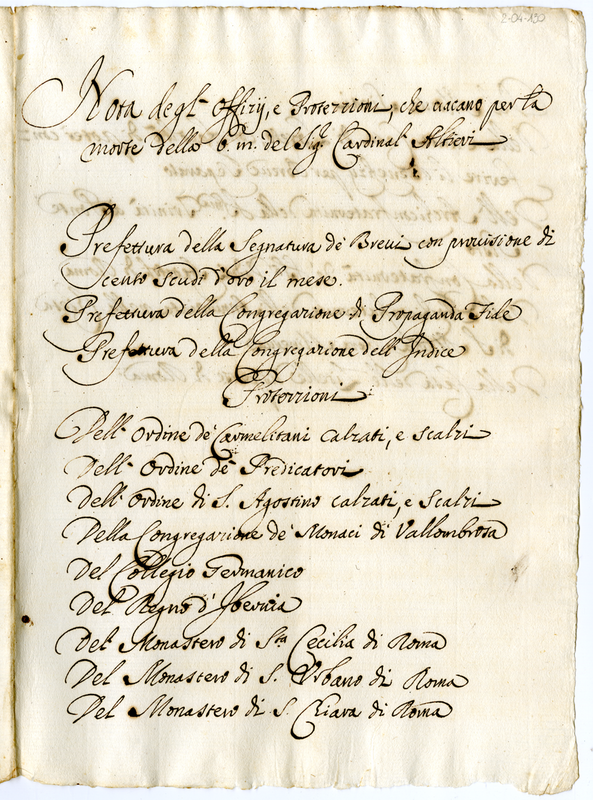 2-04-190
Nota degl' Offizij, e Protezzioni, che vacano per la
morte della b. m. del Sig.r Cardinal' Altieri
Prefettura della Segnatura de' Brevi con provisione di
scento scudi d'oro il mese.
Prefettura della Congregazione di Propaganda Fide
Prefettura della Congregazione dell' Indice
Protezzioni
Dell' Ordine de' Carmelitani calzati, e scalzi
Dell' Ordine de' Predicatori
Dell' Ordine di S. Agostino calzati, e scalzi
Della Congregazione de' Monaci di Vallombrosa
Del Collegio Germanico
Del Regno d' Ibernia
Del Monastero di S.ta Cecilia di Roma
Del Monastero di S. Urbano di Roma
Del Monastero di S. Chiara di Roma